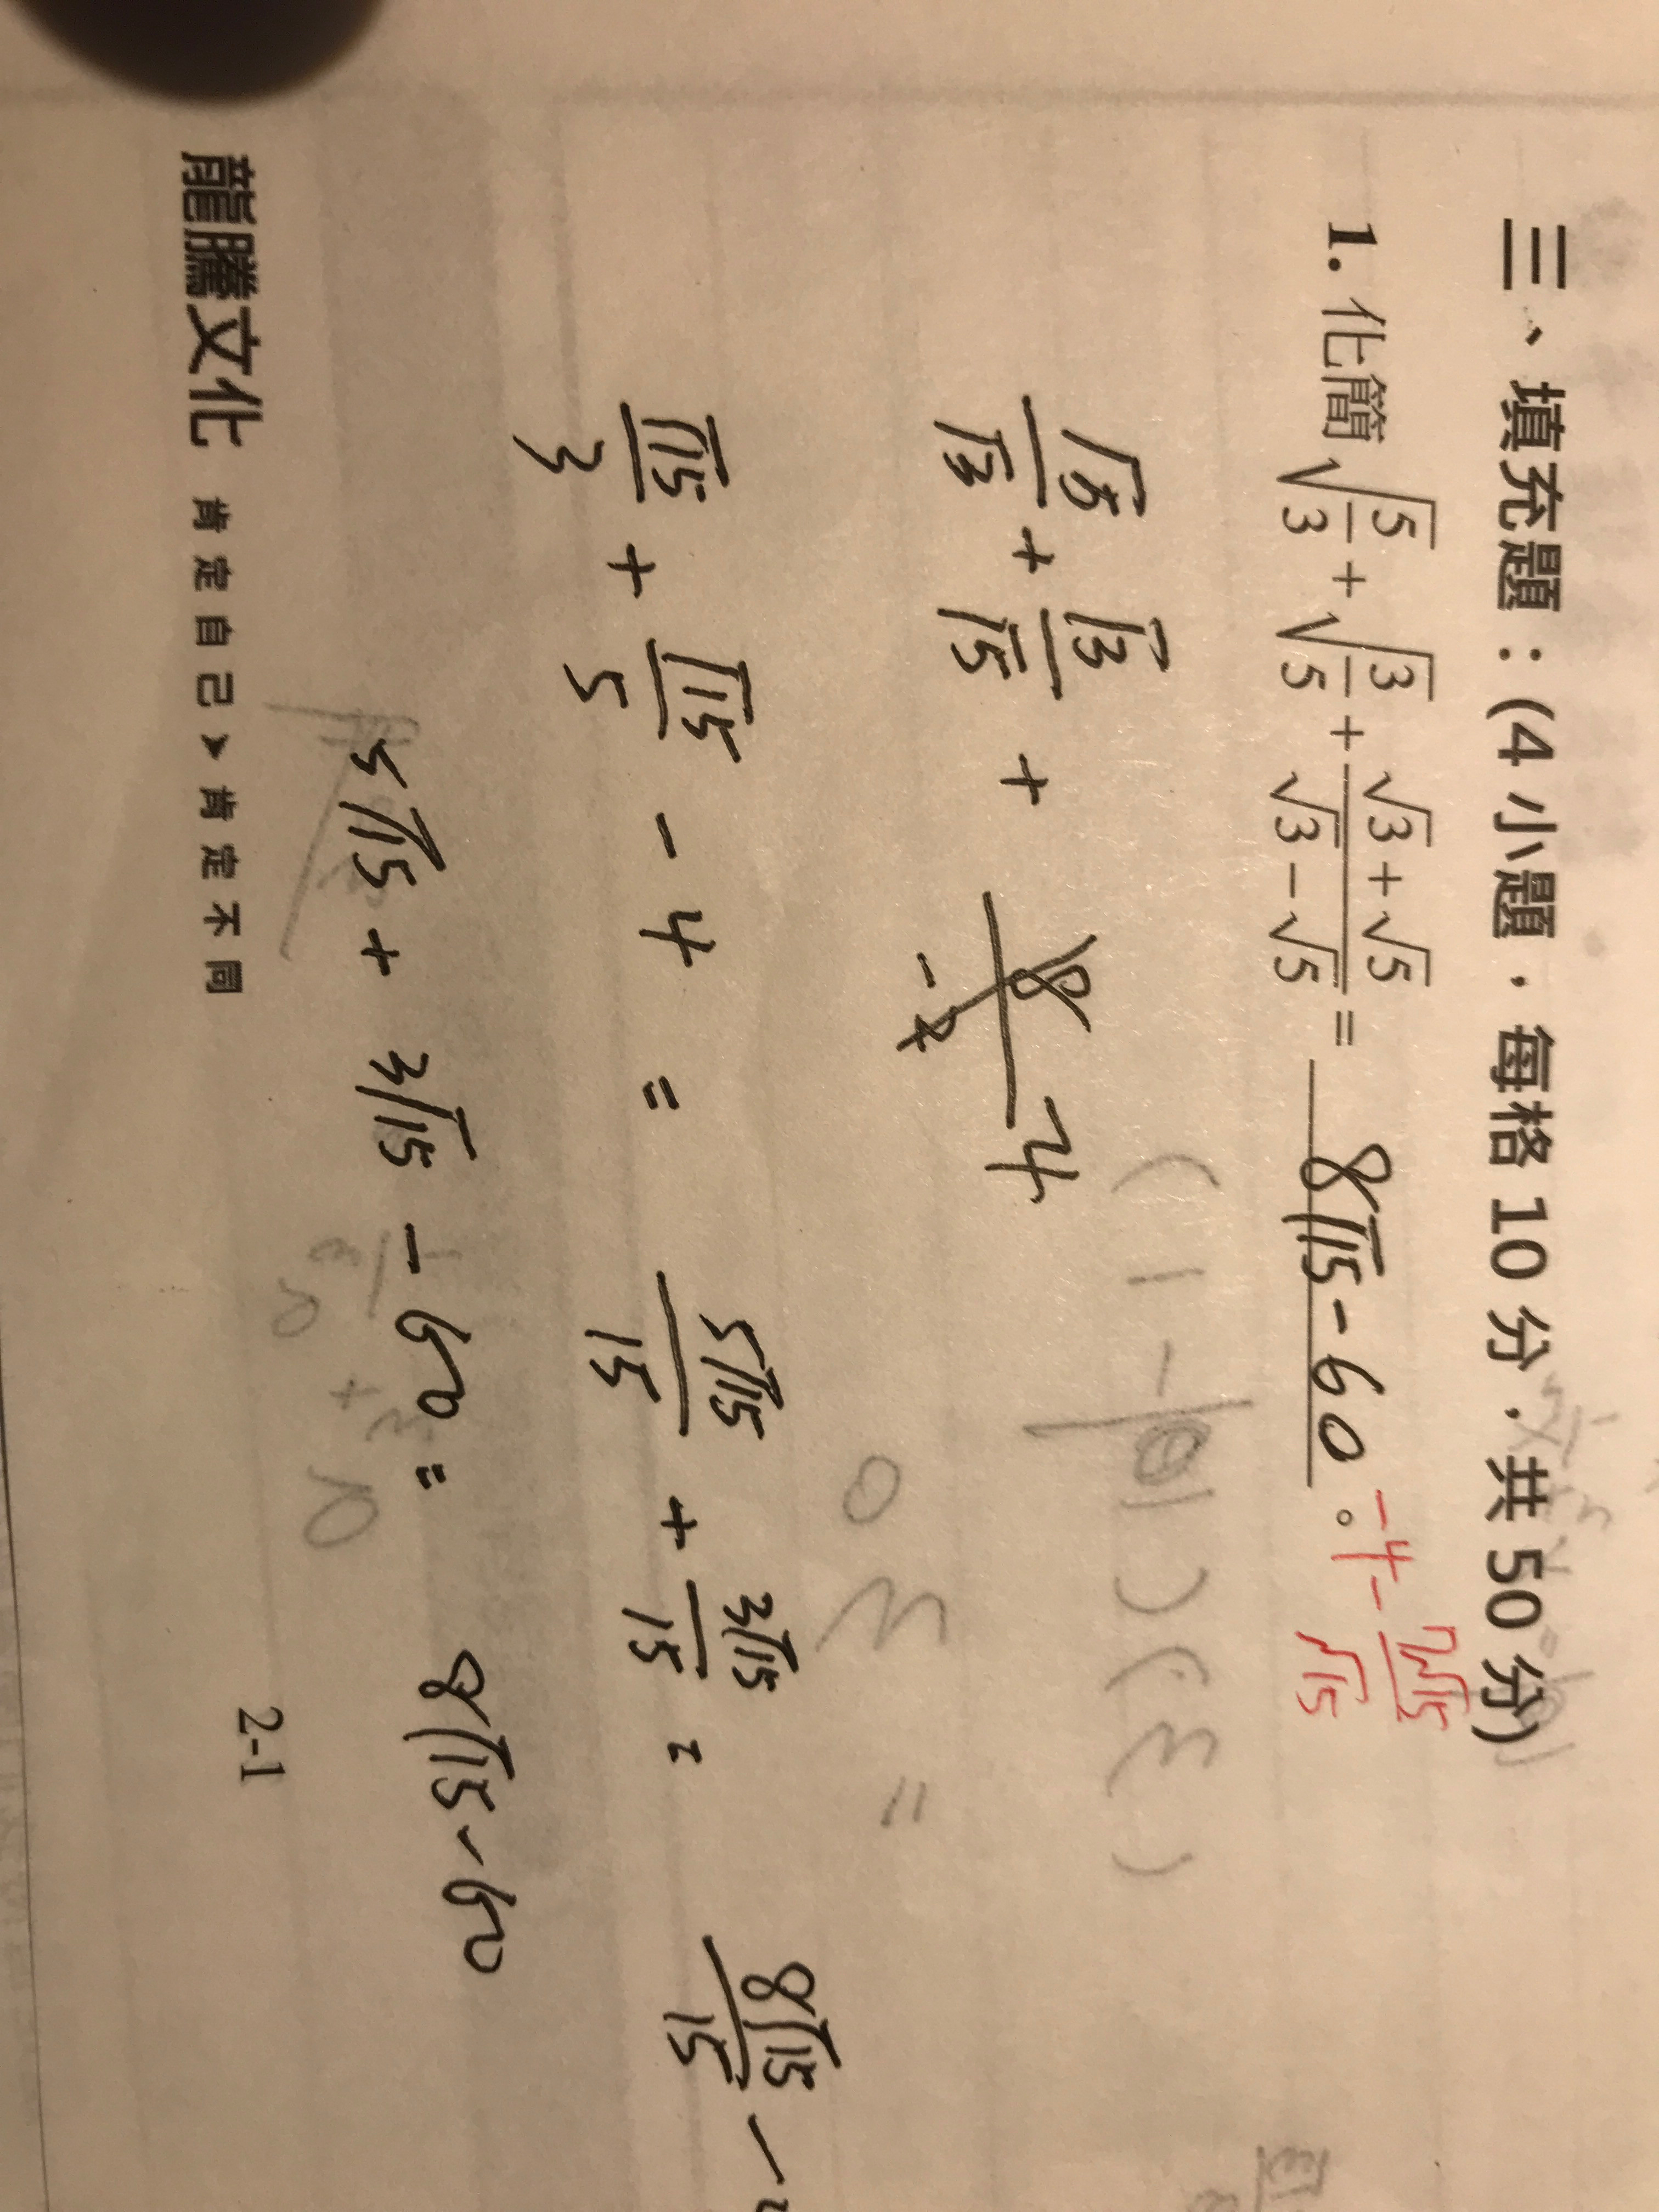 三、填充題：(4 小題，每格 10 分，共 50 分)
1. 化簡√(5/3) + √(3/5) + (√3 + √5)/(√3 − √5) = 8√15 - 60 。 -4 -
√5/√3 + √3/√5 + 8/-2 4
√15/3 + √15/5 - 4 = 5√15/15 + 3√15/15 = 8√15/15 -
5√15 + 3√15 - 60 = 8√15 - 60
龍騰文化 肯定自己➤肯定不同
2-1